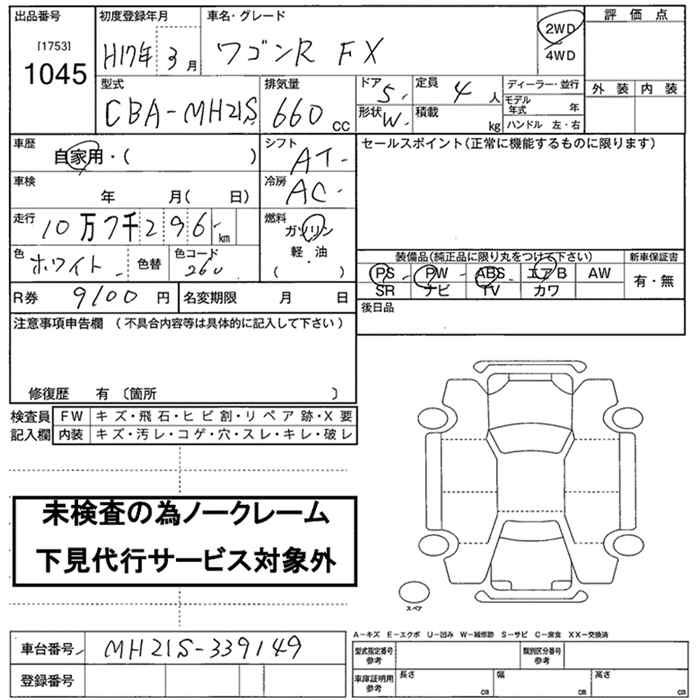 出品番号 初度登録年月 車名・グレード 評価点
[1753]
1045 H17年 3月 ワゴンR FX 2WD
4WD
型式 排気量 ドア 5 定員 4人 ディーラー・並行 外装 内装
CBA-MH21S 660cc 形状 W 積載 kg モデル年式 年
ハンドル 左・右
車歴 シフト セールスポイント(正常に機能するものに限ります)
自家用・( ) AT
車検 冷房
年 月( 日) AC
走行 燃料
10万7千296km ガソリン
軽・油
( )
色 色替 色コード 装備品(純正品に限り丸をつけて下さい) 新車保証書
ホワイト 260 PS PW ABS エアB AW 有・無
SR ナビ TV カワ
R券 9100円 名変期限 月 日 後日品
注意事項申告欄 (不具合内容等は具体的に記入して下さい)
修復歴 有 〔箇所 〕
検査員 FW キズ・飛石・ヒビ割・リペア跡・X要
記入欄 内装 キズ・汚レ・コゲ・穴・スレ・キレ・破レ
未検査の為ノークレーム
下見代行サービス対象外
スペア
A-キズ E-エクボ U-凹み W-補修跡 S-サビ C-腐食 XX-交換済
車台番号 MH21S-339149 型式指定番号 参考 類別区分番号 参考
登録番号 車庫証明用 参考 長さ cm 幅 cm 高さ cm